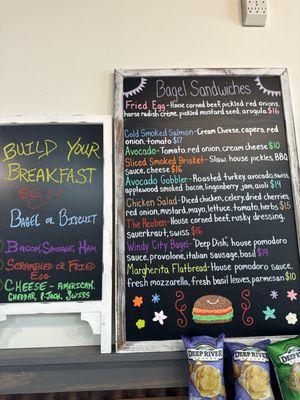 BUILD YOUR
BREAKFAST
BAGEL OR BISCUIT
BACON, SAUSAGE, HAM
SCRAMBLED OR FRIED
EGG
CHEESE - AMERICAN,
CHEDDAR, P. JACK, SWISS
Bagel Sandwiches
Fried Egg - House corned beef, pickled red onions,
horse radish crème, pickled mustard seed, arugula. $16
Cold Smoked Salmon - Cream Cheese, capers, red
onion, tomato $17
Avocado - Tomato, red onion, cream cheese $10
Sliced Smoked Brisket - Slaw, house pickles, BBQ
Sauce, cheese $16
Avocado Gobbler - Roasted turkey, avocado, swiss,
applewood smoked bacon, lingonberry jam, aioli $14
Chicken Salad - Diced chicken, celery, dried cherries,
red onion, mustard, mayo, lettuce, tomato, herbs $15
The Reuben - House corned beef, rusky dressing,
sauerkraut, swiss $16
Windy City Bagel - Deep Dish, house pomodoro
sauce, provolone, italian sausage, basil $14
Margherita Flatbread - House pomodoro sauce,
fresh mozzarella, fresh basil leaves, parmesan $10
DEEP RIVER
DEEP RIVER
DEEP RIVER